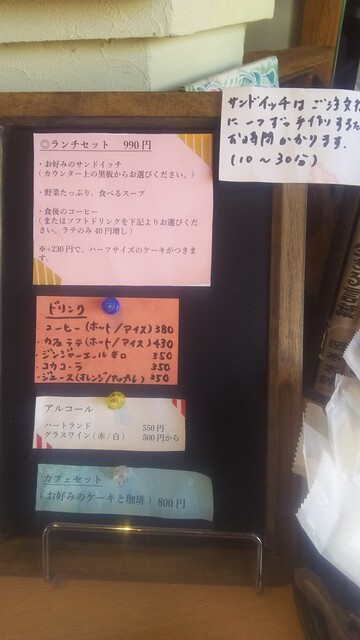 サンドイッチは ご注文
に一つずつ 手作りするた
お時間かかります。
(10〜30分)
◎ランチセット 990円
・お好みのサンドイッチ
(カウンター上の黒板からお選びください。)
・野菜たっぷり、食べるスープ
・食後のコーヒー
(またはソフトドリンクを下記よりお選びくだ
さい。ラテのみ40円増し)
※+230円で、ハーフサイズのケーキがつきま
す。
ドリンク
・コーヒー(ホット/アイス) 380
・カフェラテ(ホット/アイス) 430
・ジンジャーエール 辛口 350
・コカコーラ 350
・ジュース(オレンジ/アップル) 350
アルコール
ハートランド 550円
グラスワイン(赤/白) 500円から
カフェセット
(お好みのケーキと珈琲) 800円